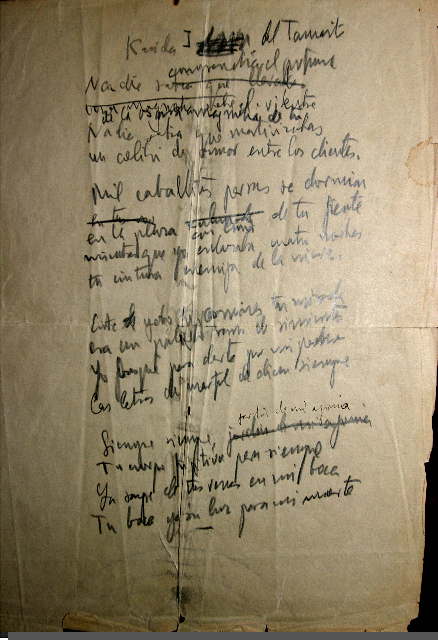 Kasida I del Tamarit
comprendía el perfume
Nadie sabía que llevabas
de la oscura magnolia de tu vientre
Nadie sabía que martirizabas
un colibrí de amor entre los dientes.
Mil caballitos persas se dormían
en la plaza con luna de tu frente
mientras que yo enlazaba cuatro noches
tu cintura enemiga de la nieve.
Entre yeso y jazmines, tu mirada
era un pálido ramo de simientes
Yo busqué para darte por mi pecho
las letras de marfil que dicen siempre
jardín de mi agonía
Siempre siempre,
Tu cuerpo fugitivo para siempre
La sangre de tus venas en mi boca
Tu boca ya sin luz para mi muerte